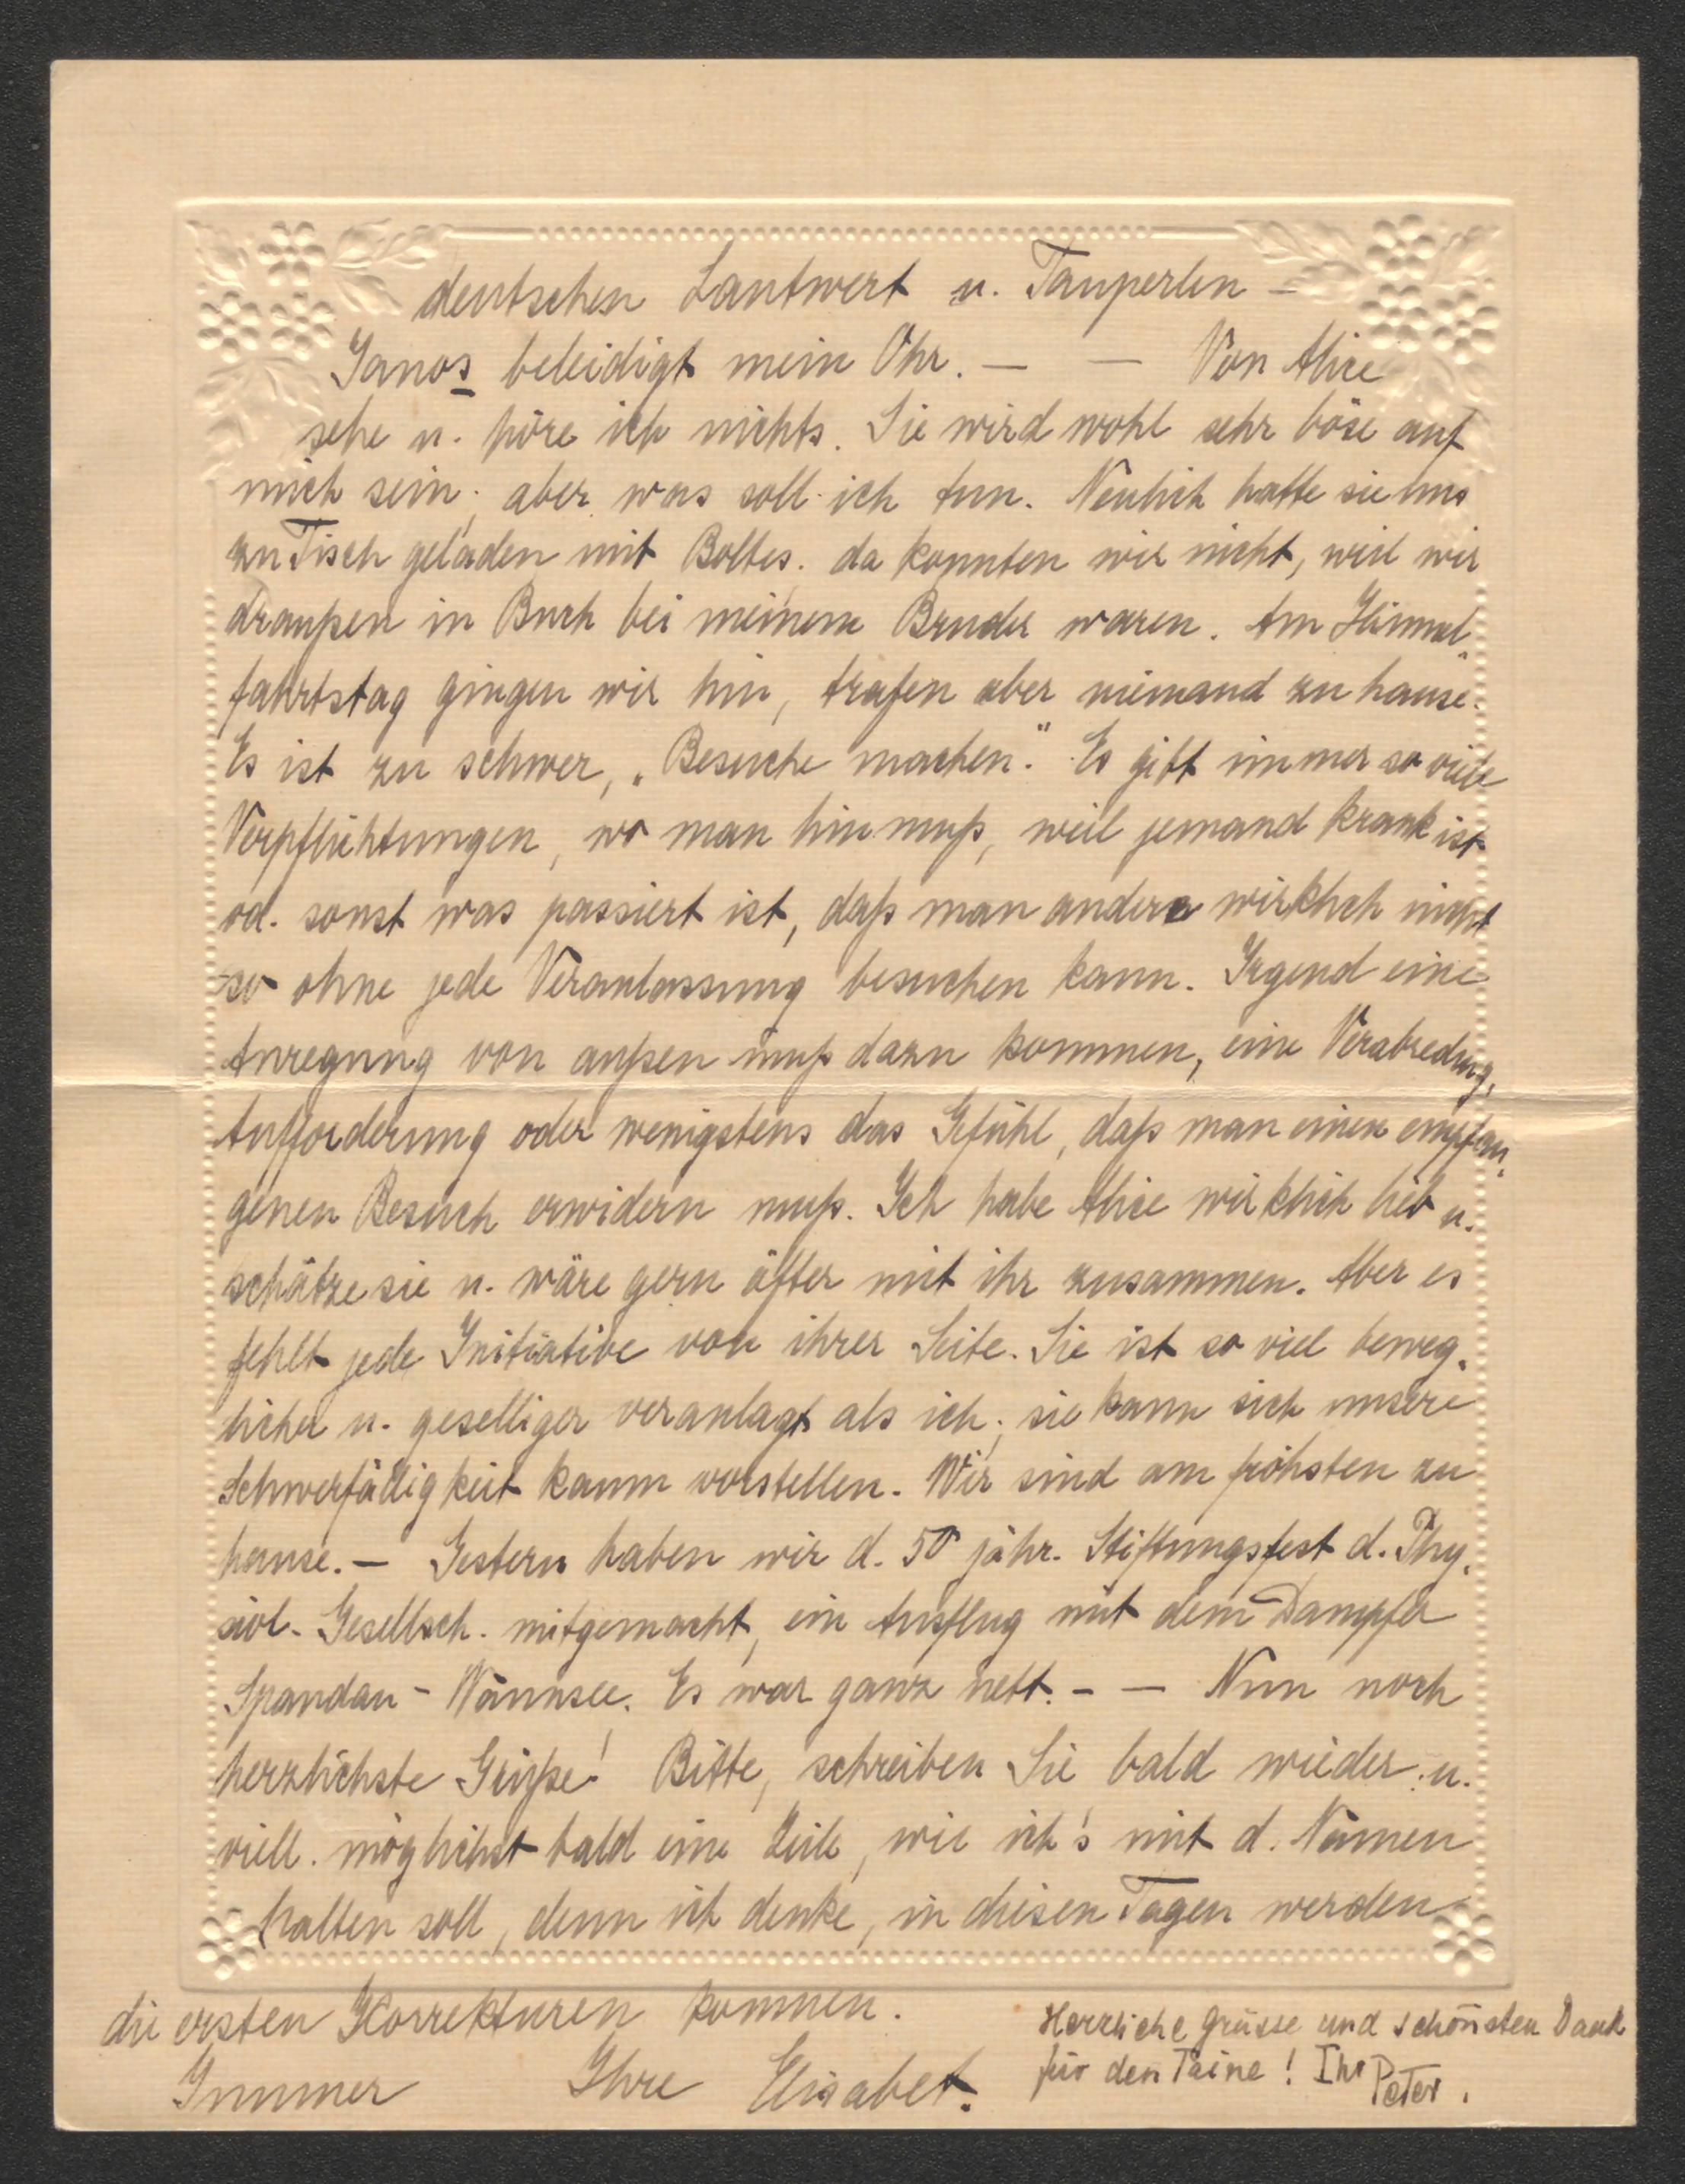 deutschen Lautwert u. Tauperlen –
Janos beleidigt mein Ohr. – – Von Alice
sehe u. höre ich nichts. Sie wird wohl sehr böse auf
mich sein; aber was soll ich tun. Neulich hatte sie uns
zu Tisch geladen mit Boltes. da konnten wir nicht, weil wir
draußen in Buch bei meinem Bruder waren. Am Himmel„
fahrtstag gingen wir hin, trafen aber niemand zu hause.
Es ist zu schwer, „Besuche machen.“ Es gibt immer so viele
Verpflichtungen, wo man hin muß, weil jemand krank ist
od. sonst was passiert ist, daß man andere wirklich nicht
so ohne jede Veranlassung besuchen kann. Irgend eine
Anregung von außen muß dazu kommen, eine Verabredung,
Aufforderung oder wenigstens das Gefühl, daß man einen empfan„
genen Besuch erwidern muß. Ich habe Alice wirklich lieb u.
schätze sie u. wäre gern öfter mit ihr zusammen. Aber es
fehlt jede Initiative von ihrer Seite. Sie ist so viel beweg„
licher u. geselliger veranlagt als ich; sie kann sich unsere
Schwerfälligkeit kaum vorstellen. Wir sind am frohsten zu
hause. – Gestern haben wir d. 50 jähr. Stiftungsfest d. Phy„
siol. Gesellsch. mitgemacht, ein Ausflug mit dem Dampfer
Spandau – Wannsee. Es war ganz nett. – – Nun noch
herzlichste Grüße! Bitte, schreiben Sie bald wieder u.
viell. möglichst bald eine Zeile, wie ich's mit d. Namen
halten soll, denn ich denke, in diesen Tagen werden
die ersten Korrekturen kommen.
Immer Ihre Elisabet.
Herzliche Grüsse und schönsten Dank
für den Taine! Ihr Peter.